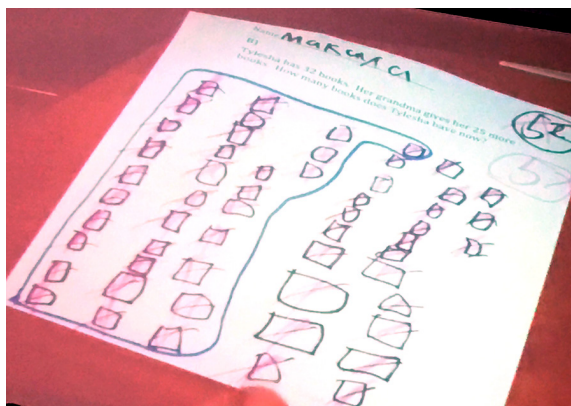 Name Makayla
B)
Tylesha has 32 books. Her grandma gives her 25 more
books. How many books does Tylesha have now?
52
52